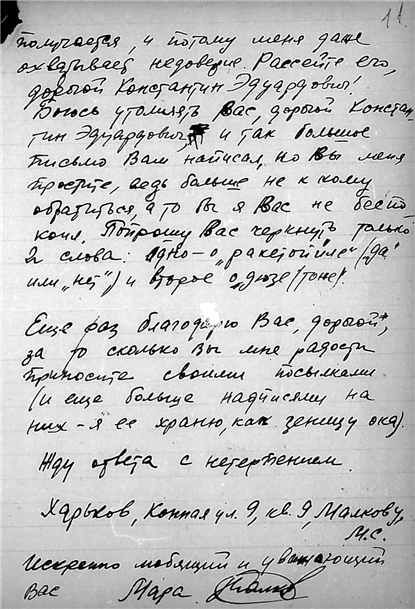 11
получается, и потому меня даже
охватывает недоверие. Рассейте его,
дорогой Константин Эдуардович!
Боюсь утомлять Вас, дорогой Констан-
тин Эдуардович, и так большое
письмо Вам написал, но Вы меня
простите, ведь больше не к кому
обратиться, а то бы я Вас не беспо-
коил. Попрошу Вас черкнуть только
2 слова: Одно – о („да“
или „нет“) и второе о дюзе (тоже).
Еще раз благодарю Вас, дорогой,
за то сколько Вы мне радости
приносите своими посылками
(и еще больше надписями на
них – я ее храню, как зеницу ока).
Жду ответа с нетерпением.
Харьков, Конная ул. 9, кв. 9, Малкову,
М.С.
Искренно любящий и уважающий
Вас Мара